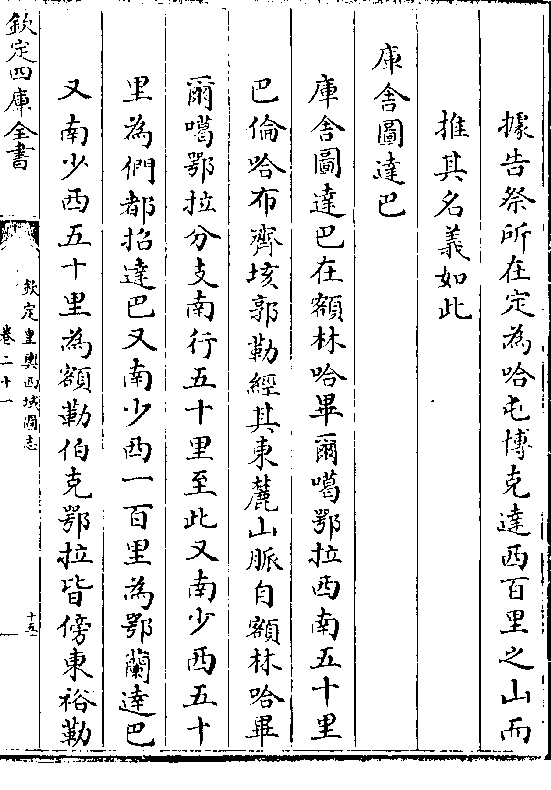 據告祭所在定為哈屯博克達西百里之山而
推其名義如此
庫舍圖達巴
庫舍圖達巴在額林哈畢爾噶鄂拉西南五十里
巴倫哈布齊垓郭勒經其東麓山脈自額林哈畢
爾噶鄂拉分支南行五十里至此又南少西五十
里為們都招達巴又南少西一百里為鄂蘭達巴
又南少西五十里為額勒伯克鄂拉皆傍東裕勒
欽定四庫全書
欽定皇輿西域圖志
卷二十一
十五